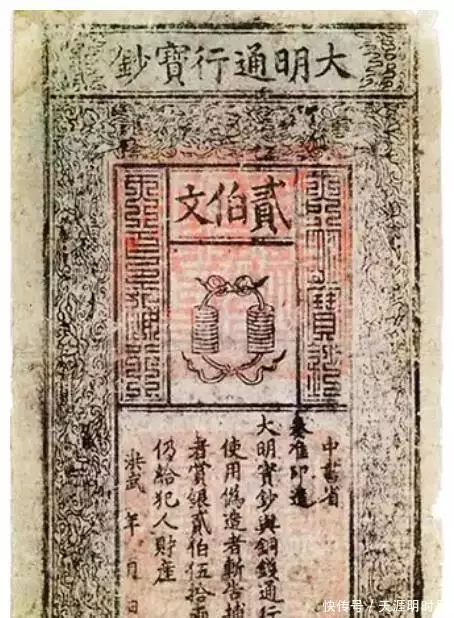 大明通行寶鈔
貳伯文
大明寶鈔
天下通行
中書省
奏准印造
大明寶鈔與銅錢通行
使用偽造者斬告捕
者賞銀貳伯伍拾兩
仍給犯人財產
洪武 年 月 日
快传号 / 天涯明时